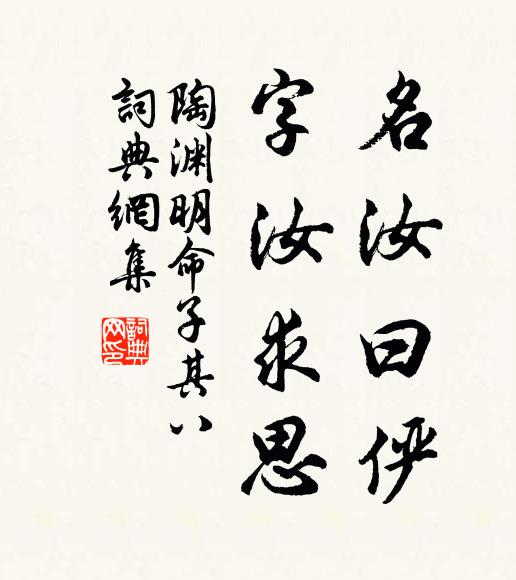 名汝曰俨
字汝求思
陶渊明命子其八
詞典網集
詞典
网印